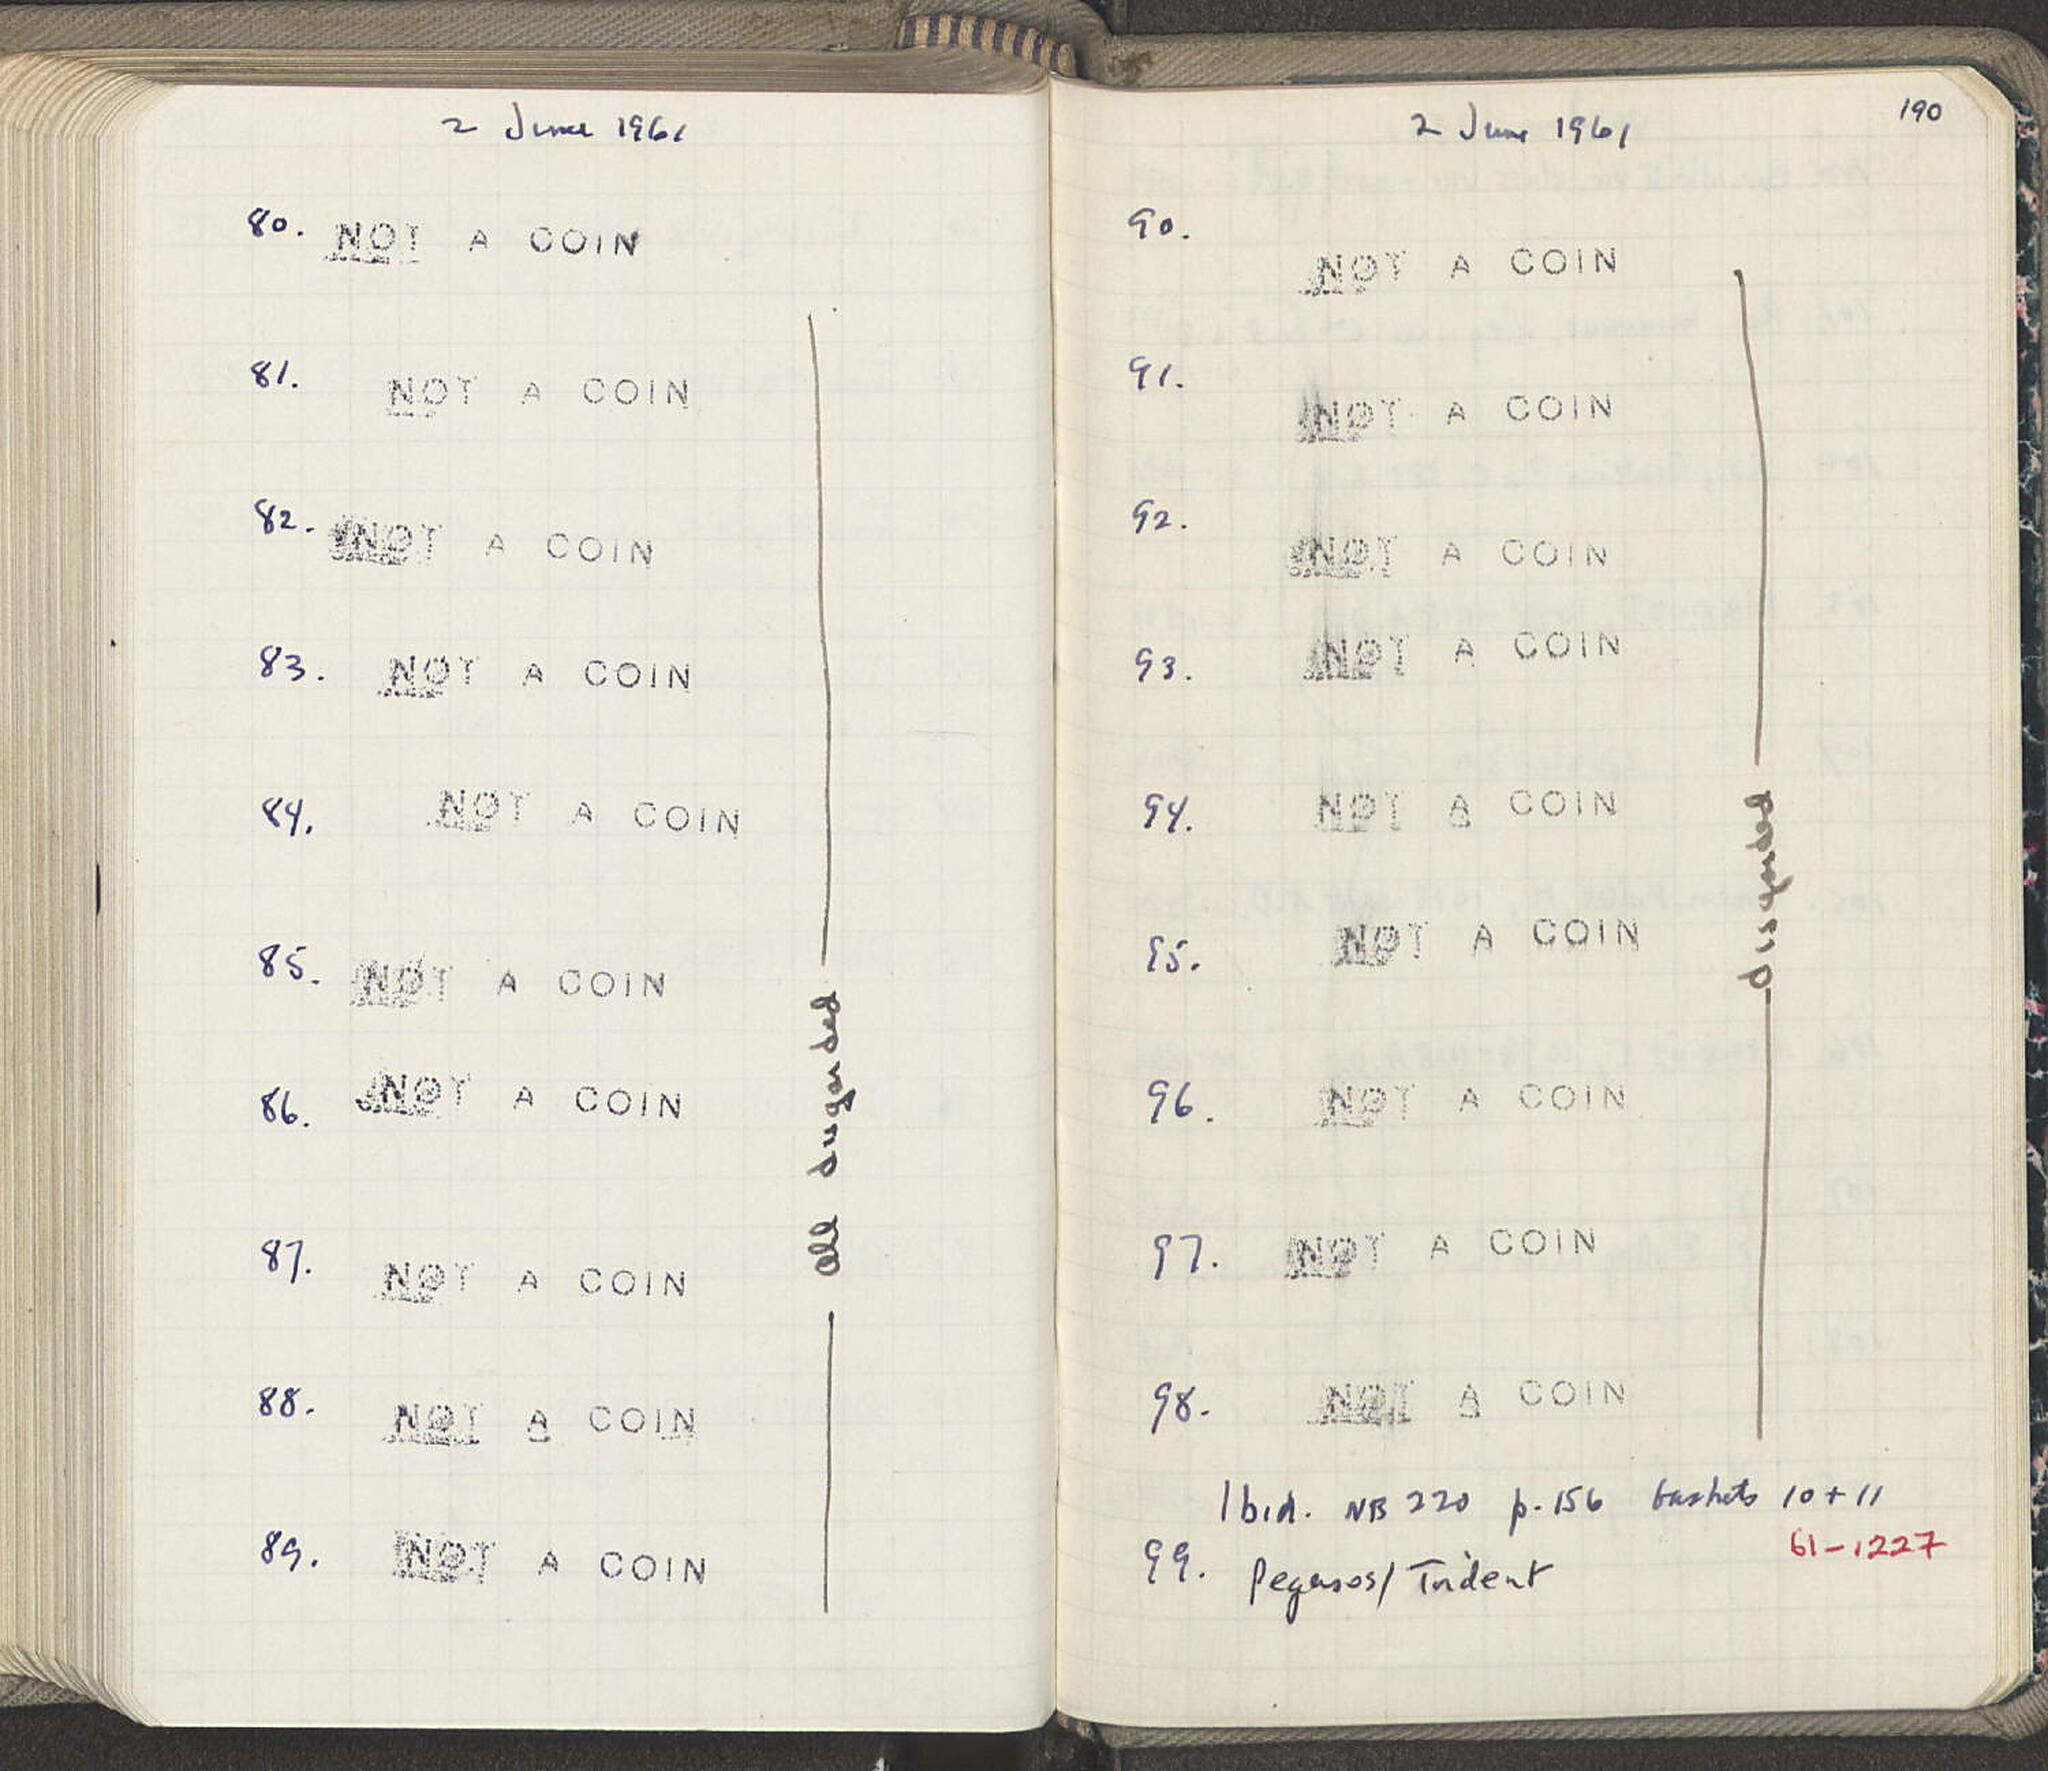 2 June 1961
80. NOT A COIN
81. NOT A COIN
82. NOT A COIN
83. NOT A COIN
84. NOT A COIN
85. NOT A COIN
86. NOT A COIN
87. NOT A COIN
88. NOT A COIN
89. NOT A COIN
all discarded
190
2 June 1961
90. NOT A COIN
91. NOT A COIN
92. NOT A COIN
93. NOT A COIN
94. NOT A COIN
95. NOT A COIN
96. NOT A COIN
97. NOT A COIN
98. NOT A COIN
Discarded
Ibid. NB 220 p. 156 baskets 10 + 11
61-1227
99. Pegasos/Trident